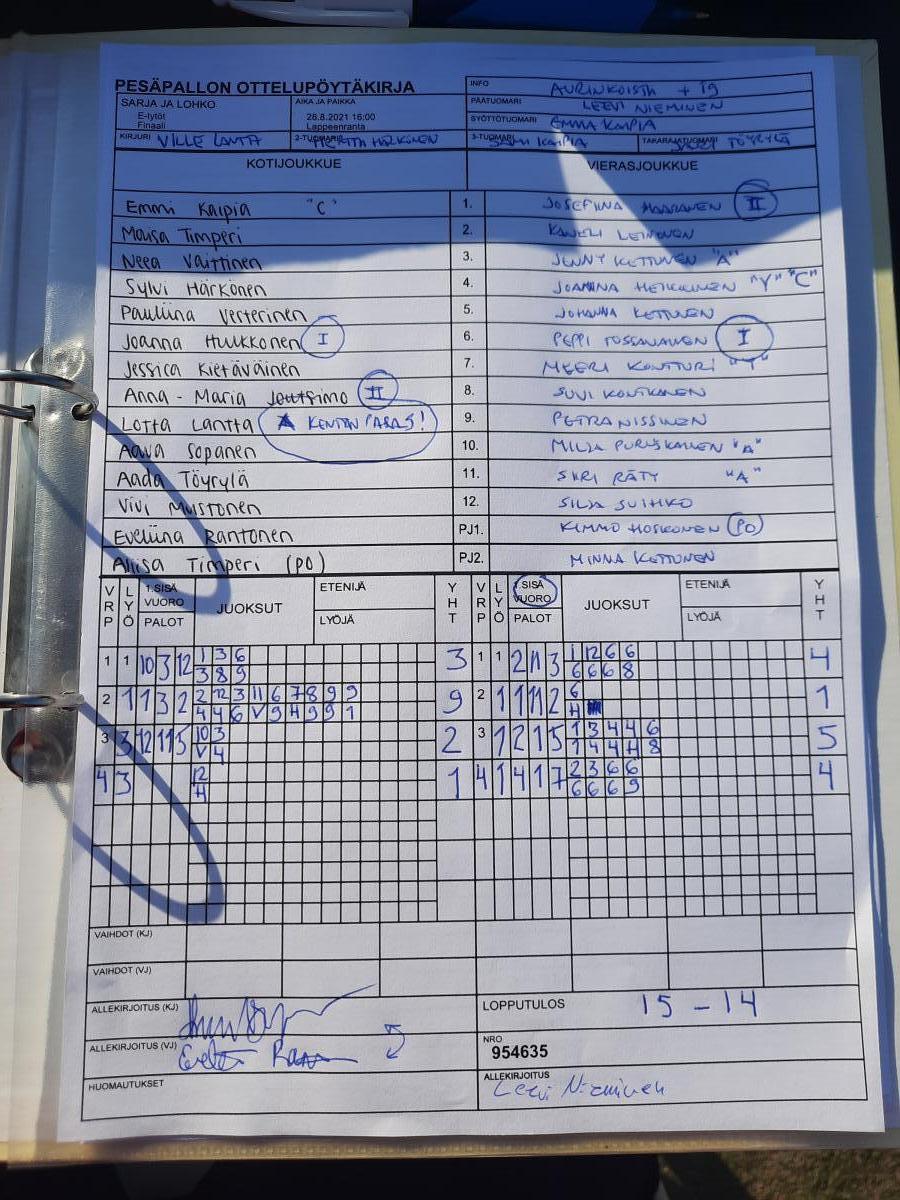 PESÄPALLON OTTELUPÖYTÄKIRJA
INFO AURINKOISTA + 19
SARJA JA LOHKO
E-tytöt
Finaali
AIKA JA PAIKKA
28.8.2021 16:00
Lappeenranta
PÄÄTUOMARI LEEVI NIEMINEN
SYÖTTÖTUOMARI EMMA KAIPIA
KIRJURI VILLE LANTTA
2-TUOMARI HÄRKÖNEN
3-TUOMARI SAMI KAIPIA
TAKARAJATUOMARI TÖYRYLÄ
KOTIJOUKKUE VIERASJOUKKUE
Emmi Kaipia "C" 1. JOSEFIINA HAARANEN II
Maisa Timperi 2. KANELI LEINONEN
Neea Väittinen 3. JENNY KETTUNEN "A"
Sylvi Härkönen 4. JOANNA HEIKKINEN "Y" "C"
Pauliina Vesterinen 5. JOHANNA KETTUNEN
Joanna Huukkonen I 6. PEPPI TOSSAVAINEN I
Jessica Kietäväinen 7. MEERI KONTTURI "Y"
Anna-Maria Joutsimo II 8. SUVI KONTKANEN
Lotta Lantta KENTÄN PARAS! 9. PETRA NISSINEN
Aava Sopanen 10. MILJA PURUSKAINEN "A"
Aada Töyrylä 11. SIIRI RÄTY "A"
Vivi Mustonen 12. SILJA SUIHKO
Eveliina Rantonen PJ1. KIMMO HOSKONEN (PO)
Aliisa Timperi (PO) PJ2. MINNA KETTUNEN
VRP LYÖ 1.SISÄ VUORO PALOT JUOKSUT ETENIJÄ LYÖJÄ YHT VRP LYÖ 1.SISÄ VUORO PALOT JUOKSUT ETENIJÄ LYÖJÄ YHT
1 1 10 3 12 1 3 6 3 1 1 2 11 3 1 12 6 6 4
3 8 9 6 6 6 8
2 1 1 3 2 2 12 3 11 6 7 8 9 9 9 2 1 1 11 2 6 1
4 4 6 V 9 H 9 9 1 H
3 3 12 11 5 10 3 2 3 1 2 1 5 1 3 4 4 6 5
V 4 1 4 4 H 8
4 3 12 1 4 1 4 1 7 2 3 6 6 4
H 6 6 6 9
VAIHDOT (KJ)
VAIHDOT (VJ)
ALLEKIRJOITUS (KJ)
LOPPUTULOS 15 - 14
ALLEKIRJOITUS (VJ)
NRO
954635
HUOMAUTUKSET
ALLEKIRJOITUS
Leevi Nieminen